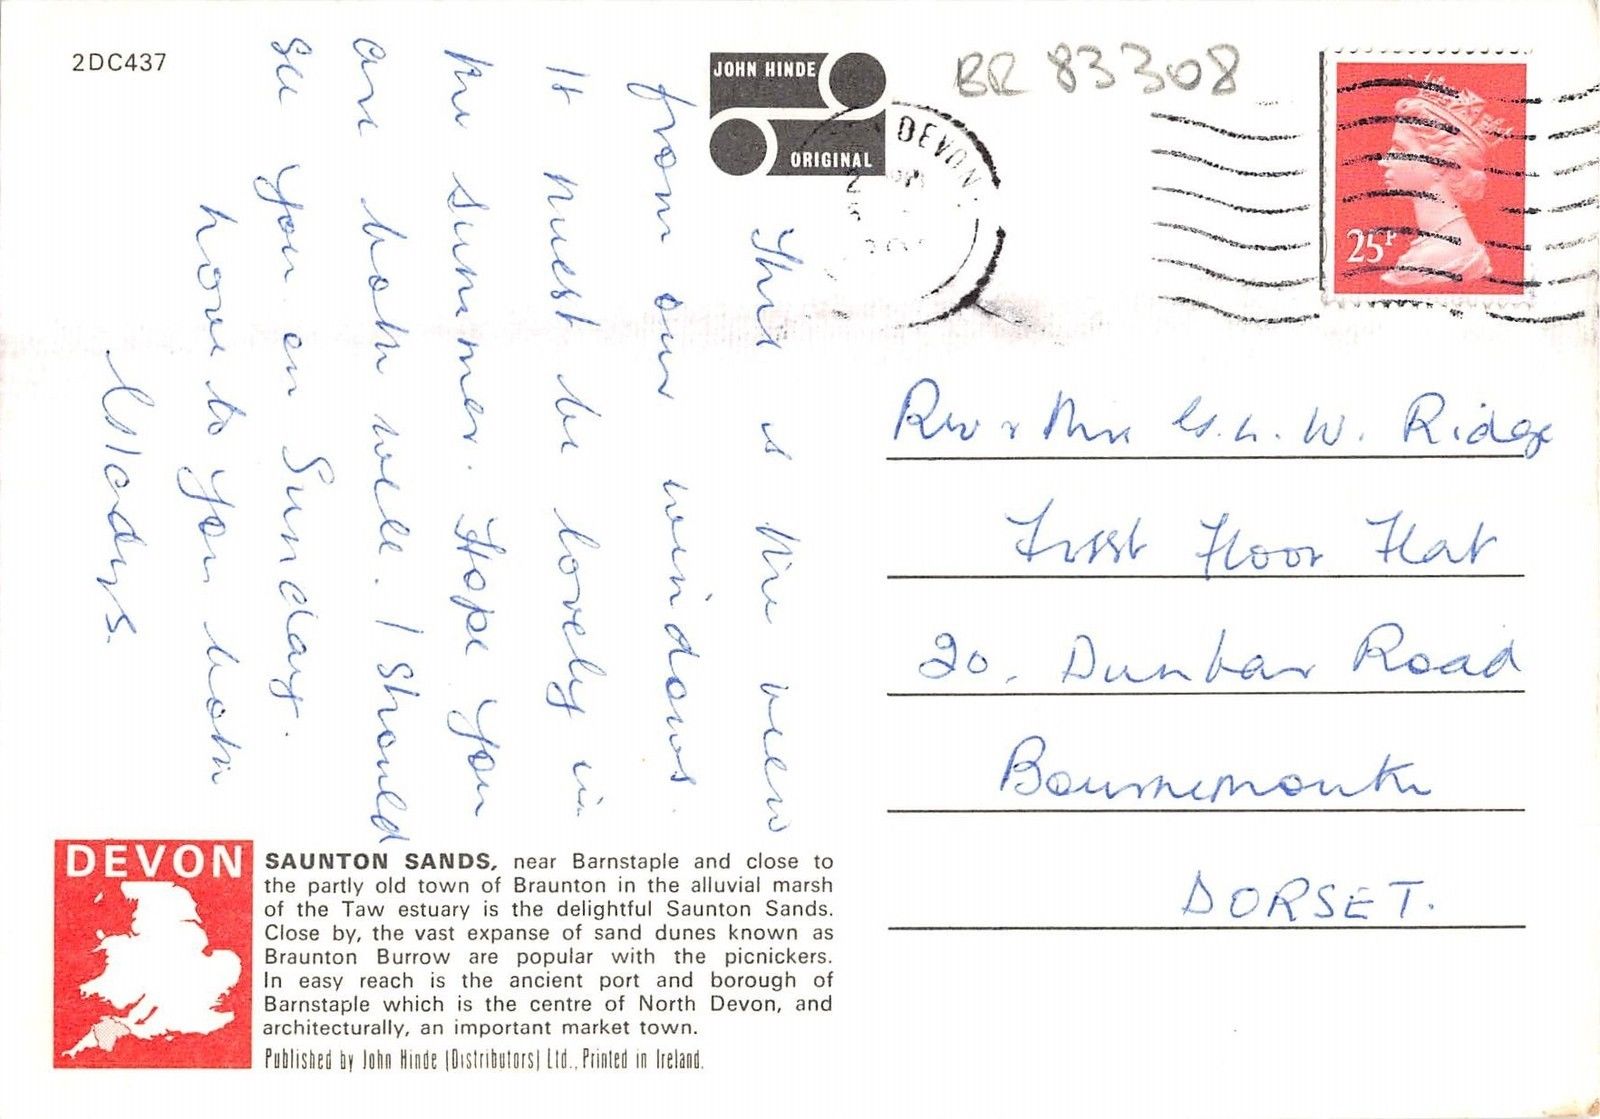 2DC437
JOHN HINDE
ORIGINAL
BR 83308
DEVON
25P
This is the view
from our windows.
It must be lovely in
the summer. Hope you
are both well. I should
see you on Sunday.
love to you both
Gladys.
Rev & Mrs G. L. W. Ridge
First Floor Flat
20. Dunbar Road
Bournemouth
DORSET.
DEVON
SAUNTON SANDS, near Barnstaple and close to
the partly old town of Braunton in the alluvial marsh
of the Taw estuary is the delightful Saunton Sands.
Close by, the vast expanse of sand dunes known as
Braunton Burrow are popular with the picnickers.
In easy reach is the ancient port and borough of
Barnstaple which is the centre of North Devon, and
architecturally, an important market town.
Published by John Hinde (Distributors) Ltd., Printed in Ireland.